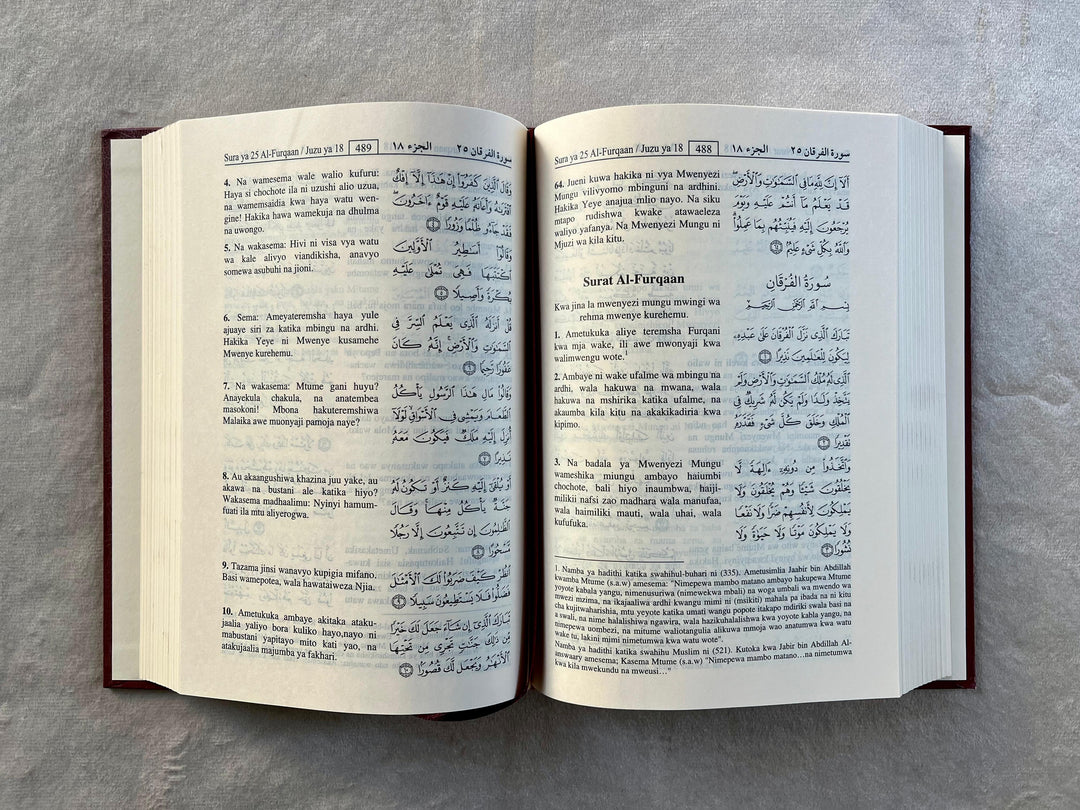 Sura ya 25 Al-Furqaan / Juzu ya 18 488 الجزء ١٨ سورة الفرقان ٢٥
64. Jueni kuwa hakika ni vya Mwenyezi
Mungu vilivyomo mbinguni na ardhini.
Hakika Yeye anajua mlio nayo. Na siku
mtapo rudishwa kwake atawaeleza
waliyo yafanya. Na Mwenyezi Mungu ni
Mjuzi wa kila kitu.
أَلَآ إِنَّ لِلَّهِ مَا فِي ٱلسَّمَٰوَٰتِ وَٱلۡأَرۡضِۖ
قَدۡ يَعۡلَمُ مَآ أَنتُمۡ عَلَيۡهِ وَيَوۡمَ
يُرۡجَعُونَ إِلَيۡهِ فَيُنَبِّئُهُم بِمَا عَمِلُواْۗ
وَٱللَّهُ بِكُلِّ شَيۡءٍ عَلِيمُۢ ٦٤
Surat Al-Furqaan
سُورَةُ الفُرْقَانِ
Kwa jina la mwenyezi mungu mwingi wa
rehma mwenye kurehemu.
بِسۡمِ ٱللَّهِ ٱلرَّحۡمَٰنِ ٱلرَّحِيمِ
1. Ametukuka aliye teremsha Furqani
kwa mja wake, ili awe mwonyaji kwa
walimwengu wote.1
تَبَارَكَ ٱلَّذِي نَزَّلَ ٱلۡفُرۡقَانَ عَلَىٰ عَبۡدِهِۦ
لِيَكُونَ لِلۡعَٰلَمِينَ نَذِيرًا ١
2. Ambaye ni wake ufalme wa mbingu na
ardhi, wala hakuwa na mwana, wala
hakuwa na mshirika katika ufalme, na
akaumba kila kitu na akakikadiria kwa
kipimo.
ٱلَّذِي لَهُۥ مُلۡكُ ٱلسَّمَٰوَٰتِ وَٱلۡأَرۡضِ وَلَمۡ
يَتَّخِذۡ وَلَدٗا وَلَمۡ يَكُن لَّهُۥ شَرِيكٞ فِي
ٱلۡمُلۡكِ وَخَلَقَ كُلَّ شَيۡءٖ فَقَدَّرَهُۥ
تَقۡدِيرٗا ٢
3. Na badala ya Mwenyezi Mungu
wameshika miungu ambayo haiumbi
chochote, bali hiyo inaumbwa, haiji-
milikii nafsi zao madhara wala manufaa,
wala haimiliki mauti, wala uhai, wala
kufufuka.
وَٱتَّخَذُواْ مِن دُونِهِۦٓ ءَالِهَةٗ لَّا
يَخۡلُقُونَ شَيۡـٔٗا وَهُمۡ يُخۡلَقُونَ وَلَا
يَمۡلِكُونَ لِأَنفُسِهِمۡ ضَرّٗا وَلَا نَفۡعٗا
وَلَا يَمۡلِكُونَ مَوۡتٗا وَلَا حَيَوٰةٗ وَلَا
نُشُورٗا ٣
1. Namba ya hadithi katika swahihul-buhari ni (335). Ametusimlia Jaabir bin Abdillah
kwamba Mtume (s.a.w) amesema: "Nimepewa mambo matano ambayo hakupewa Mtume
yoyote kabala yangu, nimenusuriwa (nimewekwa mbali) na woga umbali wa mwendo wa
mwezi mzima, na ikajaaliwa ardhi kwangu mimi ni (msikiti) mahala pa ibada na ni kitu
cha kujitwaharishia, mtu yeyote katika umati wangu popote itakapo mdiriki swala basi na
a swali, na nime halalishiwa ngawira, wala hazikuhalalishwa kwa yoyote kabla yangu, na
nimepewa uombezi, na mitume waliotangulia alikuwa mmoja wao anatumwa kwa watu
wake tu, lakini mimi nimetumwa kwa watu wote".
Namba ya hadithi katika swahihu Muslim ni (521). Kutoka kwa Jabir bin Abdillah Al-
answaary amesema; Kasema Mtume (s.a.w) "Nimepewa mambo matano...na nimetumwa
kwa kila mwekundu na mweusi…"
Sura ya 25 Al-Furqaan / Juzu ya 18 489 الجزء ١٨ سورة الفرقان ٢٥
4. Na wamesema wale walio kufuru:
Haya si chochote ila ni uzushi alio uzua,
na wamemsaidia kwa haya watu wen-
gine! Hakika hawa wamekuja na dhulma
na uwongo.
وَقَالَ ٱلَّذِينَ كَفَرُوٓاْ إِنۡ هَٰذَآ إِلَّآ إِفۡكٌ
ٱفۡتَرَىٰهُ وَأَعَانَهُۥ عَلَيۡهِ قَوۡمٌ ءَاخَرُونَۖ
فَقَدۡ جَآءُو ظُلۡمٗا وَزُورٗا ٤
5. Na wakasema: Hivi ni visa vya watu
wa kale alivyo viandikisha, anavyo
somewa asubuhi na jioni.
وَقَالُوٓاْ أَسَٰطِيرُ ٱلۡأَوَّلِينَ
ٱكۡتَتَبَهَا فَهِيَ تُمۡلَىٰ عَلَيۡهِ
بُكۡرَةٗ وَأَصِيلٗا ٥
6. Sema: Ameyateremsha haya yule
ajuaye siri za katika mbingu na ardhi.
Hakika Yeye ni Mwenye kusamehe
Mwenye kurehemu.
قُلۡ أَنزَلَهُ ٱلَّذِي يَعۡلَمُ ٱلسِّرَّ فِي
ٱلسَّمَٰوَٰتِ وَٱلۡأَرۡضِۚ إِنَّهُۥ كَانَ
غَفُورٗا رَّحِيمٗا ٦
7. Na wakasema: Mtume gani huyu?
Anayekula chakula, na anatembea
masokoni! Mbona hakuteremshiwa
Malaika awe muonyaji pamoja naye?
وَقَالُواْ مَالِ هَٰذَا ٱلرَّسُولِ يَأۡكُلُ
ٱلطَّعَامَ وَيَمۡشِي فِي ٱلۡأَسۡوَاقِ لَوۡلَآ
أُنزِلَ إِلَيۡهِ مَلَكٞ فَيَكُونَ مَعَهُۥ
نَذِيرًا ٧
8. Au akaangushiwa khazina juu yake, au
akawa na bustani ale katika hiyo?
Wakasema madhaalimu: Nyinyi hamum-
fuati ila mtu aliyerogwa.
أَوۡ يُلۡقَىٰٓ إِلَيۡهِ كَنزٌ أَوۡ تَكُونُ لَهُۥ
جَنَّةٞ يَأۡكُلُ مِنۡهَاۚ وَقَالَ
ٱلظَّٰلِمُونَ إِن تَتَّبِعُونَ إِلَّا رَجُلٗا
مَّسۡحُورًا ٨
9. Tazama jinsi wanavyo kupigia mifano.
Basi wamepotea, wala hawataiweza Njia.
ٱنظُرۡ كَيۡفَ ضَرَبُواْ لَكَ ٱلۡأَمۡثَٰلَ
فَضَلُّواْ فَلَا يَسۡتَطِيعُونَ سَبِيلٗا ٩
10. Ametukuka ambaye akitaka ataku-
jaalia yaliyo bora kuliko hayo,nayo ni
mabustani yapitayo mito kati yao, na
atakujaalia majumba ya fakhari.
تَبَارَكَ ٱلَّذِيٓ إِن شَآءَ جَعَلَ لَكَ خَيۡرٗا
مِّن ذَٰلِكَ جَنَّٰتٖ تَجۡرِي مِن تَحۡتِهَا
ٱلۡأَنۡهَٰرُ وَيَجۡعَل لَّكَ قُصُورَۢا ١٠